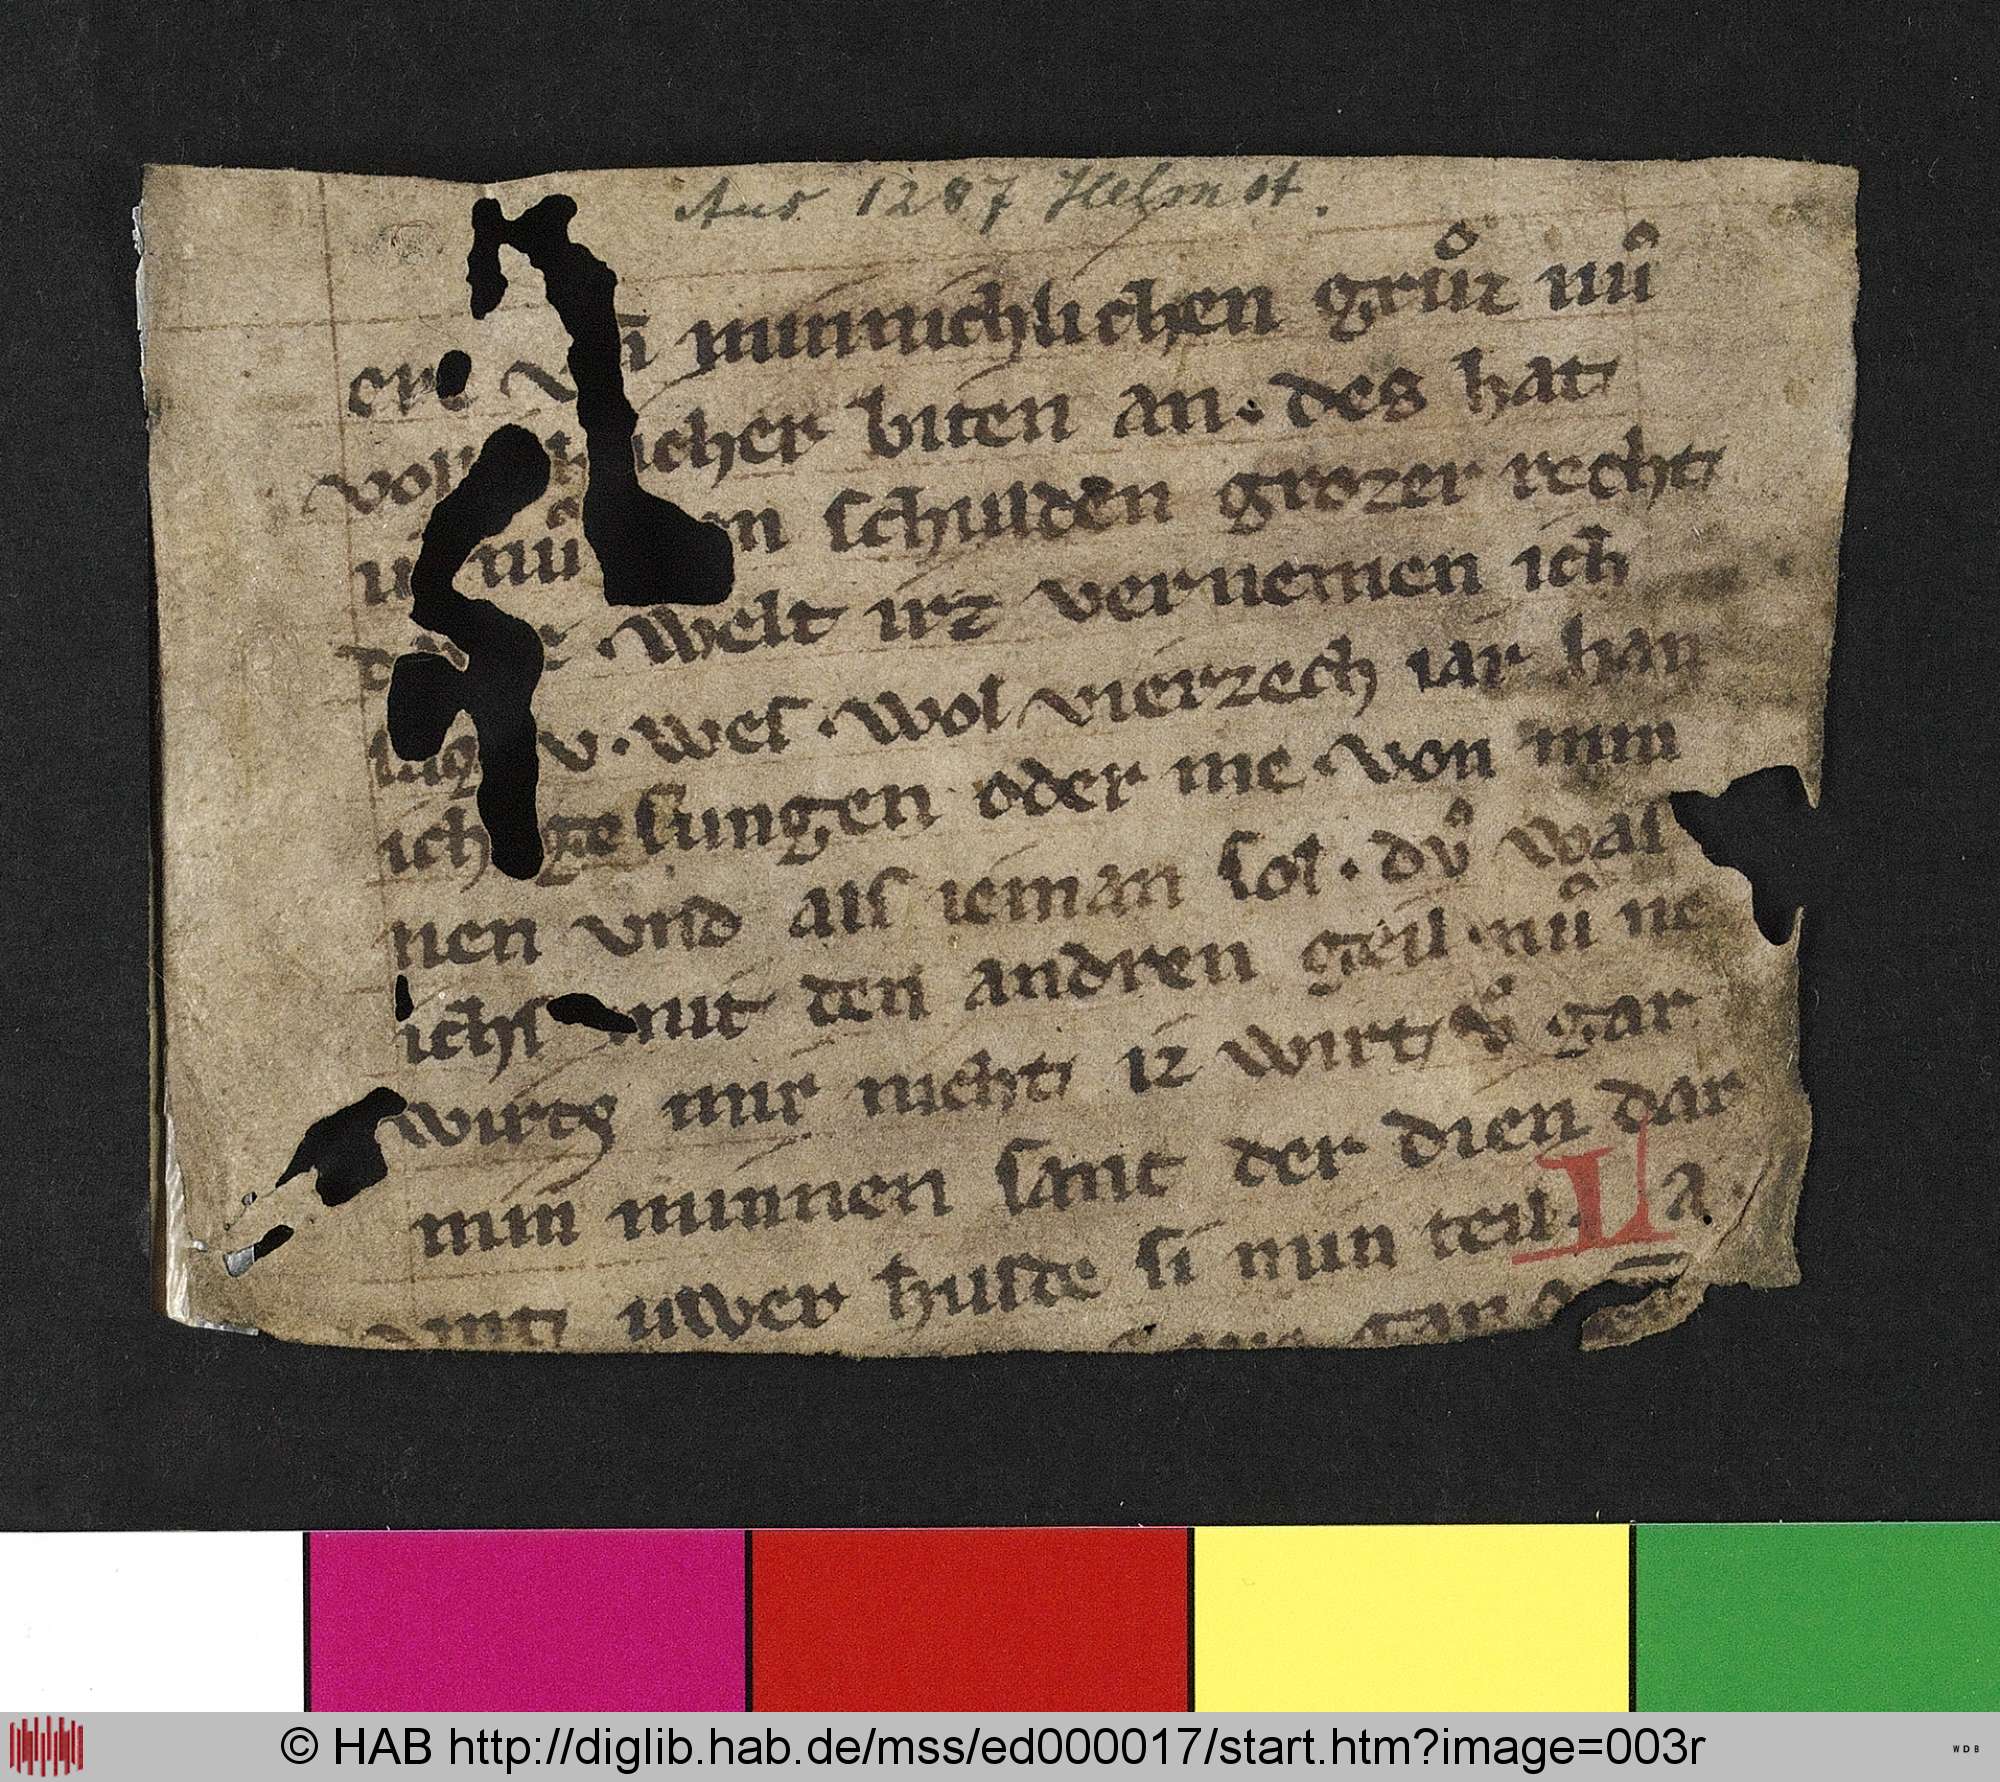 Aus 1287 Helmst.
minnichlichen gruͦz nuͦ
licher biten an · des hat
schulden grozer recht
· welt irz vernemen ich
v · wes · wol vierzech iar han
ich gesungen oder me · von min
nen vnd als ieman sol · dvͦ was
ichs mit den andren geil · nuͦ ne
wirtz mir nicht iz wirt vͦ gar
min minnen sanc der dien dar
uwer hulde si min teil · La
gar
© HAB http://diglib.hab.de/mss/ed000017/start.htm?image=003r
WDB